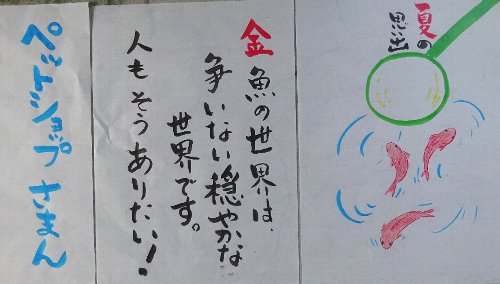 夏の
思い出
金魚の世界は、
争いない穏やかな
世界です。
人もそうありたい!
ペットショップさまん